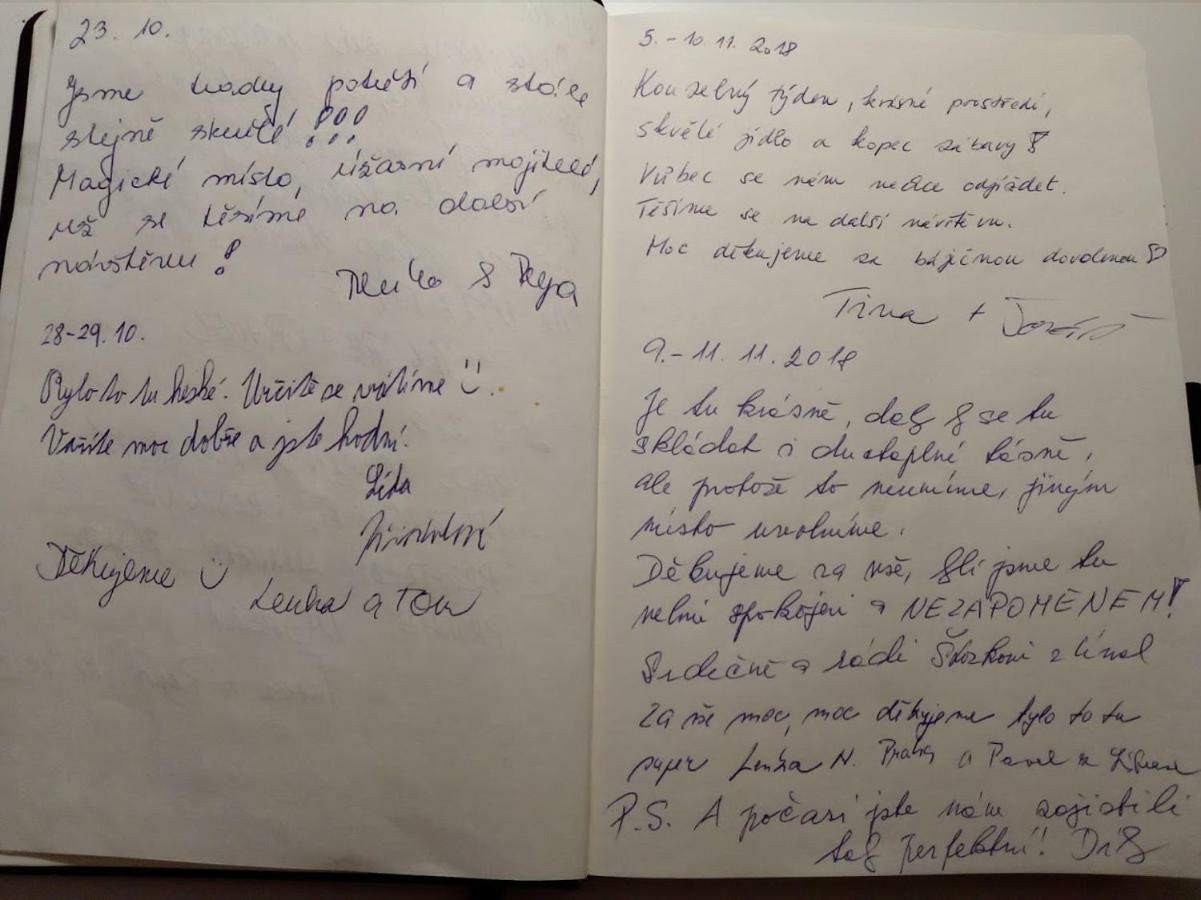 23. 10.
Jsme tradky potřetí a stále
stejně skvělé!!!
Magické místo, úžasní majitelé,
už se těšíme na další
návštěvu!
28-29. 10.
Bylo to tu hezké. Určitě se vrátíme
Vaříte moc dobře a jste hodní.
Lída
Děkujeme
Lenka a Tom
5. - 10. 11. 2018
Kouzelný týden, krásné prostředí,
skvělé jídlo a kopec zábavy!
Vůbec se nám nechce odjíždet.
Těšíme se na další návštěvu.
Moc děkujeme za báječnou dovolenou
Tina +
9. - 11. 11. 2018
Je tu krásně, daly by se tu
skládat i duchaplné básně,
ale protože to neumíme, jiným
místo uvolníme.
Děkujeme za vše, byli jsme tu
velmi spokojeni a NEZAPOMENEM!
Srdečně a rádi z
Za vše moc, moc děkujeme bylo to tu
super Lenka N. Praha a Pavel z
P.S. A počasí jste nám zajistili
tak perfektní!